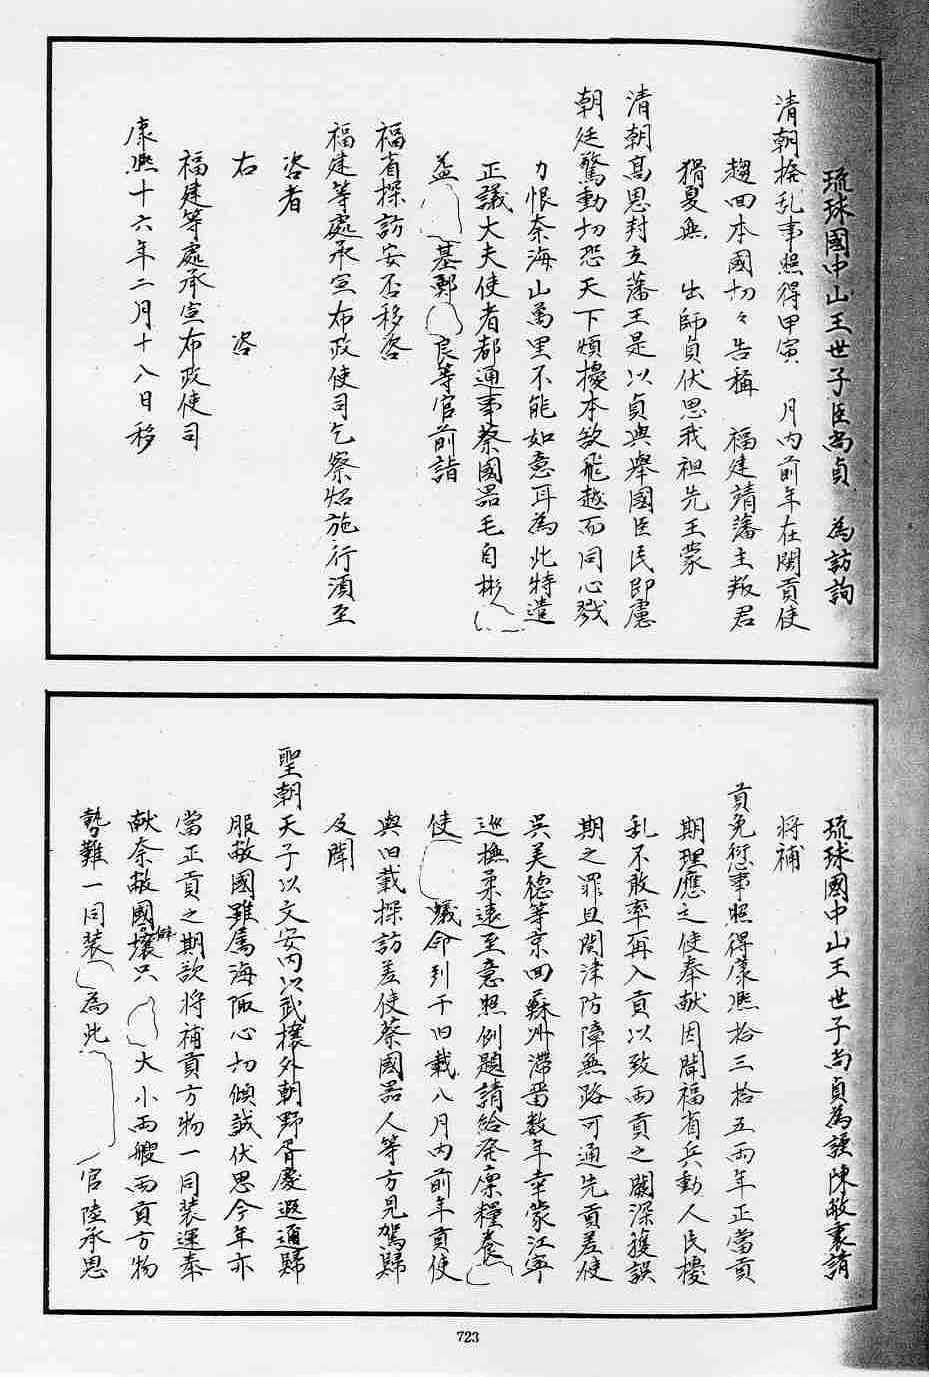 琉球國中山王世子臣尚貞　為訪詢
清朝撥乱事照得甲寅　月内前年在閩貢使
趨回本國切々告稱　福建靖藩主叛君
猾夏無　出師貞伏思我祖先王蒙
清朝高恩封立藩王是以貞與舉國臣民即慮
朝廷驚動切恐天下煩擾本欲飛越而同心戮
力恨奈海山萬里不能如意耳為此特遣
正議大夫使者都通事蔡國器毛自彬
益　基鄭　良等官前詣
福省探訪安否移咨
福建等處承宣布政使司乞察炤施行須至
咨者
右　　　咨
福建等處承宣布政使司
康熙十六年二月十八日移
琉球國中山王世子尚貞為謹陳敝衷請
将補
貢免愆事照得康熙拾三拾五両年正當貢
期理應之使奉献因聞福省兵動人民擾
乱不敢率再入貢以致両貢之闕深獲誤
期之罪且関津防障無路可通先貢差使
呉美德等京回蘇州滞畨数年幸蒙江寧
巡撫柔遠至意照例題請給発廪糧養
使　蟻命到于旧載八月内前年貢使
與旧載探訪差使蔡國器人等方見駕歸
及聞
聖朝天子以文安内以武攘外朝野胥慶遐迩歸
服敝國雖属海陬心切傾誠伏思今年亦
當正貢之期欲将補貢方物一同装運奉
献奈敝國僻壤只　大小両艘両貢方物
勢難一同装　為此　官陸承恩
723